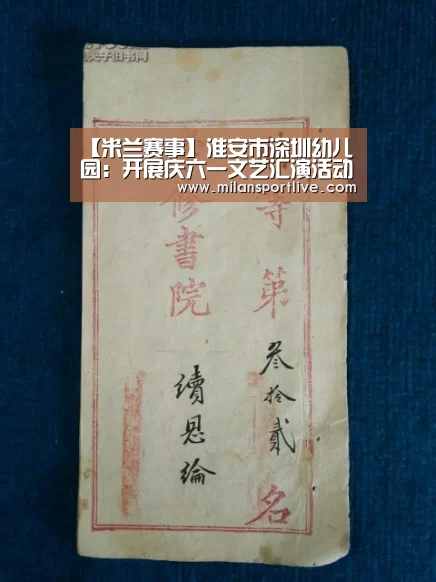 夫子旧书网
【米兰赛事】淮安市深圳幼儿
园：开展庆六一文艺汇演活动
www.milansportlive.com
等第叁拾貳名
修書院
續恩綸